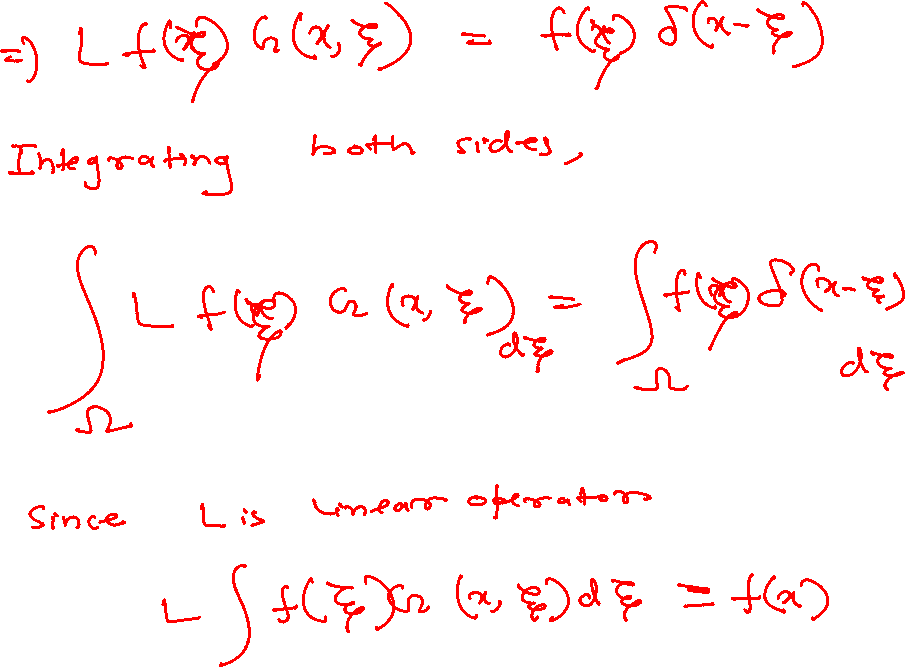 ⇒ L f(ξ) G(x, ξ) = f(ξ) δ(x-ξ)
Integrating both sides,
∫_Ω L f(ξ) G(x, ξ) dξ = ∫_Ω f(ξ) δ(x-ξ) dξ
Since L is linear operator
L ∫ f(ξ) G(x, ξ) dξ = f(x)